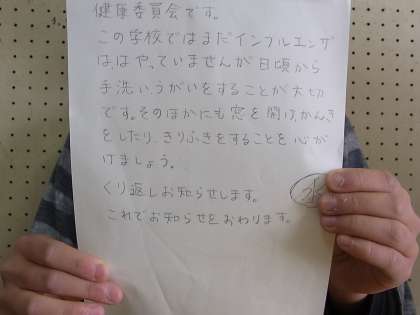 健康委員会です。
この学校ではまだインフルエンザ
は、はやっていませんが日頃から
手洗い、うがいをすることが大切
です。そのほかにも窓を開け、かんき
をしたり、きりふきをすることを心が
けましょう。
くり返しお知らせします。
これでお知らせをおわります。
水